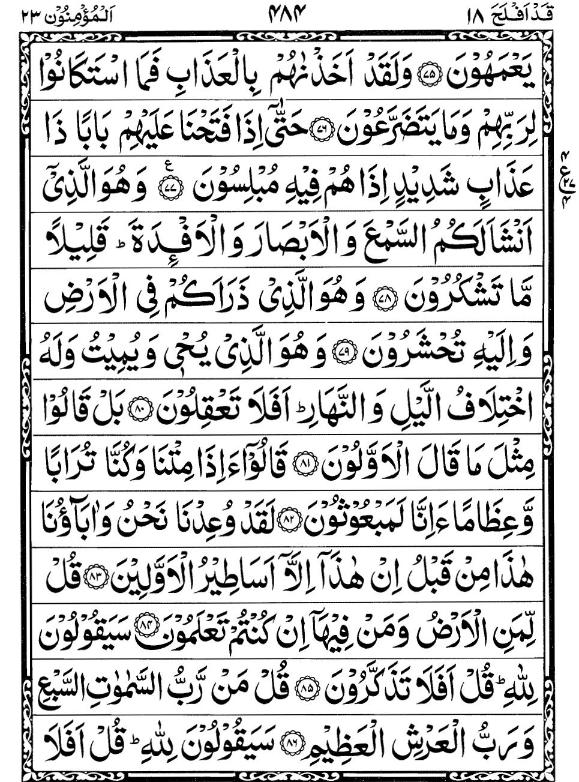 قَدْ اَفْلَحَ ١٨ ٤٨٤ اَلْمُؤْمِنُوْن ٢٣
يَعْمَهُوْنَ ﴿٧٥﴾ وَلَقَدْ اَخَذْنٰهُمْ بِالْعَذَابِ فَمَا اسْتَكَانُوْا
لِرَبِّهِمْ وَمَا يَتَضَرَّعُوْنَ ﴿٧٦﴾ حَتّٰٓى اِذَا فَتَحْنَا عَلَيْهِمْ بَابًا ذَا
عَذَابٍ شَدِيْدٍ اِذَا هُمْ فِيْهِ مُبْلِسُوْنَ ﴿٧٧﴾ ع وَهُوَ الَّذِيْٓ
اَنْشَاَ لَكُمُ السَّمْعَ وَالْاَبْصَارَ وَالْاَفْـِٕدَةَ ؕ قَلِيْلًا
مَّا تَشْكُرُوْنَ ﴿٧٨﴾ وَهُوَ الَّذِيْ ذَرَاَكُمْ فِى الْاَرْضِ
وَاِلَيْهِ تُحْشَرُوْنَ ﴿٧٩﴾ وَهُوَ الَّذِيْ يُحْيٖ وَيُمِيْتُ وَلَهُ
اخْتِلَافُ الَّيْلِ وَالنَّهَارِ ؕ اَفَلَا تَعْقِلُوْنَ ﴿٨٠﴾ بَلْ قَالُوْا
مِثْلَ مَا قَالَ الْاَوَّلُوْنَ ﴿٨١﴾ قَالُوْٓا ءَاِذَا مِتْنَا وَكُنَّا تُرَابًا
وَّعِظَامًا ءَاِنَّا لَمَبْعُوْثُوْنَ ﴿٨٢﴾ لَقَدْ وُعِدْنَا نَحْنُ وَاٰبَآؤُنَا
هٰذَا مِنْ قَبْلُ اِنْ هٰذَآ اِلَّآ اَسَاطِيْرُ الْاَوَّلِيْنَ ﴿٨٣﴾ قُلْ
لِّمَنِ الْاَرْضُ وَمَنْ فِيْهَآ اِنْ كُنْتُمْ تَعْلَمُوْنَ ﴿٨٤﴾ سَيَقُوْلُوْنَ
لِلّٰهِ ؕ قُلْ اَفَلَا تَذَكَّرُوْنَ ﴿٨٥﴾ قُلْ مَنْ رَّبُّ السَّمٰوٰتِ السَّبْعِ
وَرَبُّ الْعَرْشِ الْعَظِيْمِ ﴿٨٦﴾ سَيَقُوْلُوْنَ لِلّٰهِ ؕ قُلْ اَفَلَا